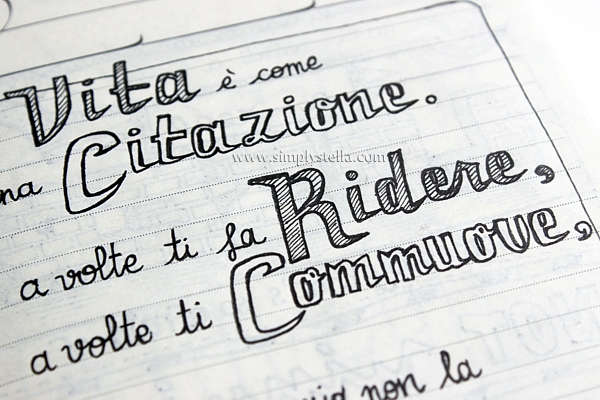 Vita è come
na Citazione.
www.simplystella.com
a volte ti fa Ridere,
a volte ti Commuove,
non la